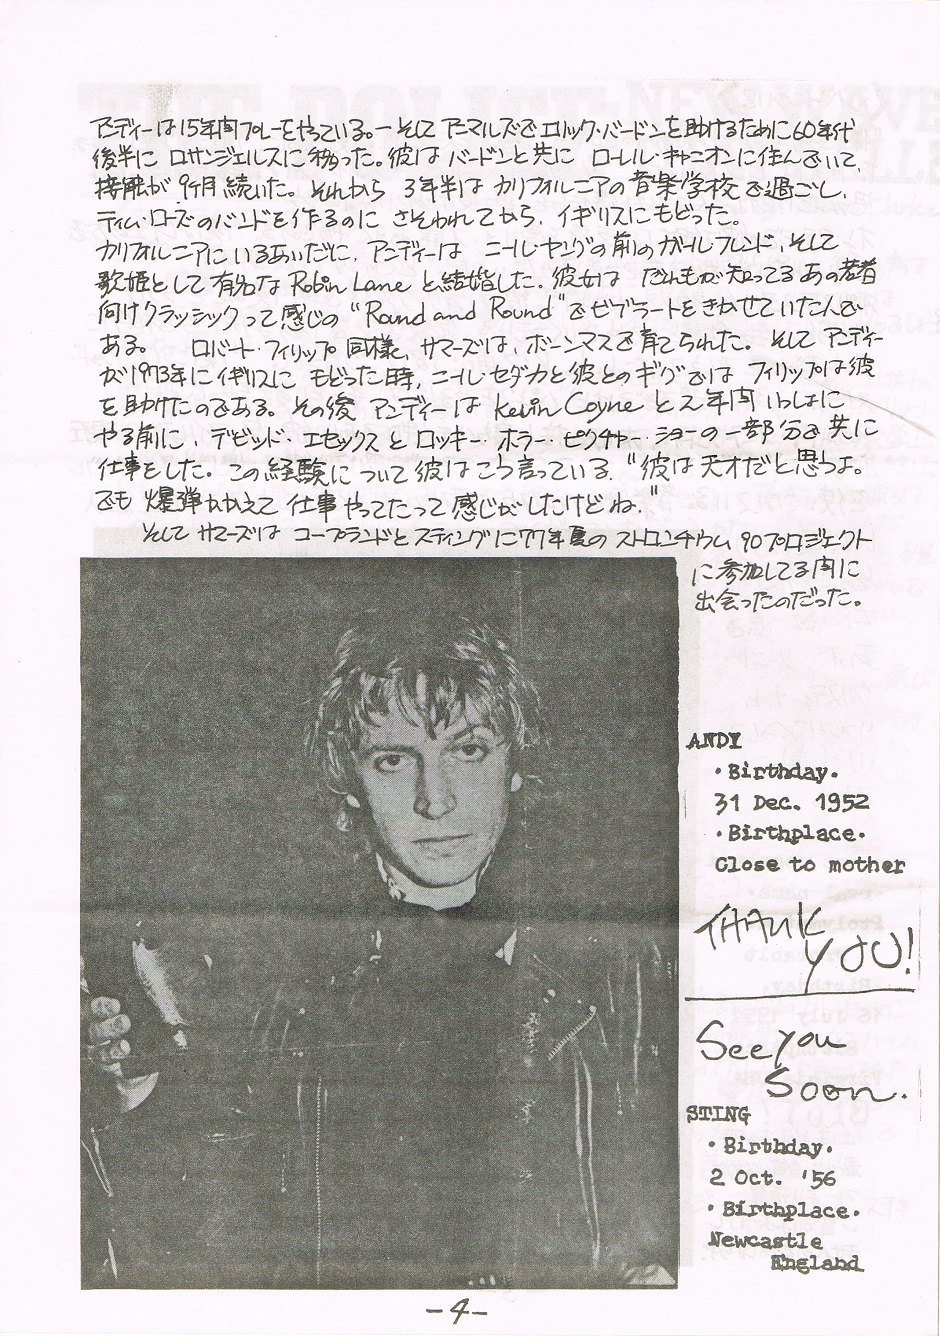 アンディーは15年間プレーをやっている。ーそして アニマルズでエロック・バードンを助けるために60年代
後半に ロサンジェルスに移った。彼は バードンと共に ローレル・キャニオンに住んでいて、
接触が 9ヶ月 続いた。それから 3年半は カリフォルニアの音楽学校で過ごし、
ティム・ローズのバンドを作るのに さそわれてから、イギリスにもどった。
カリフォルニアにいるあいだに、アンディーは ニール・ヤングの前のガールフレンド、そして
歌姫として有名な Robin Lane と結婚した。彼女は だれもが知ってるあの若者
向けクラッシックって感じの "Round and Round" でビブラートをきかせていたんで
ある。 ロバート・フィリップ同様、サマーズは、ボーンマスで育てられた。そしてアンディー
が1973年にイギリスに もどった時、ニール・セダカと彼とのギグでは フィリップは彼
を助けたのである。その後 アンディーは Kevin Coyne と2年間 いっしょに
やる前に、デビッド・エセックスとロッキー・ホラー・ピクチャー・ショーの一部分で共に
仕事をした。この経験について彼はこう言っている。"彼は天才だと思うよ。
でも 爆弾かかえて 仕事やってたって感じがしたけどね。"
そして サマーズは コープランドと スティングに'77年夏の ストロンチウム 90プロジェクト
に参加してる内に
出会ったのだった。
ANDY
・Birthday.
31 Dec. 1952
・Birthplace.
Close to mother
THANK
YOU!
See you
Soon.
STING
・Birthday.
2 Oct. '56
・Birthplace.
Newcastle
England
-4-